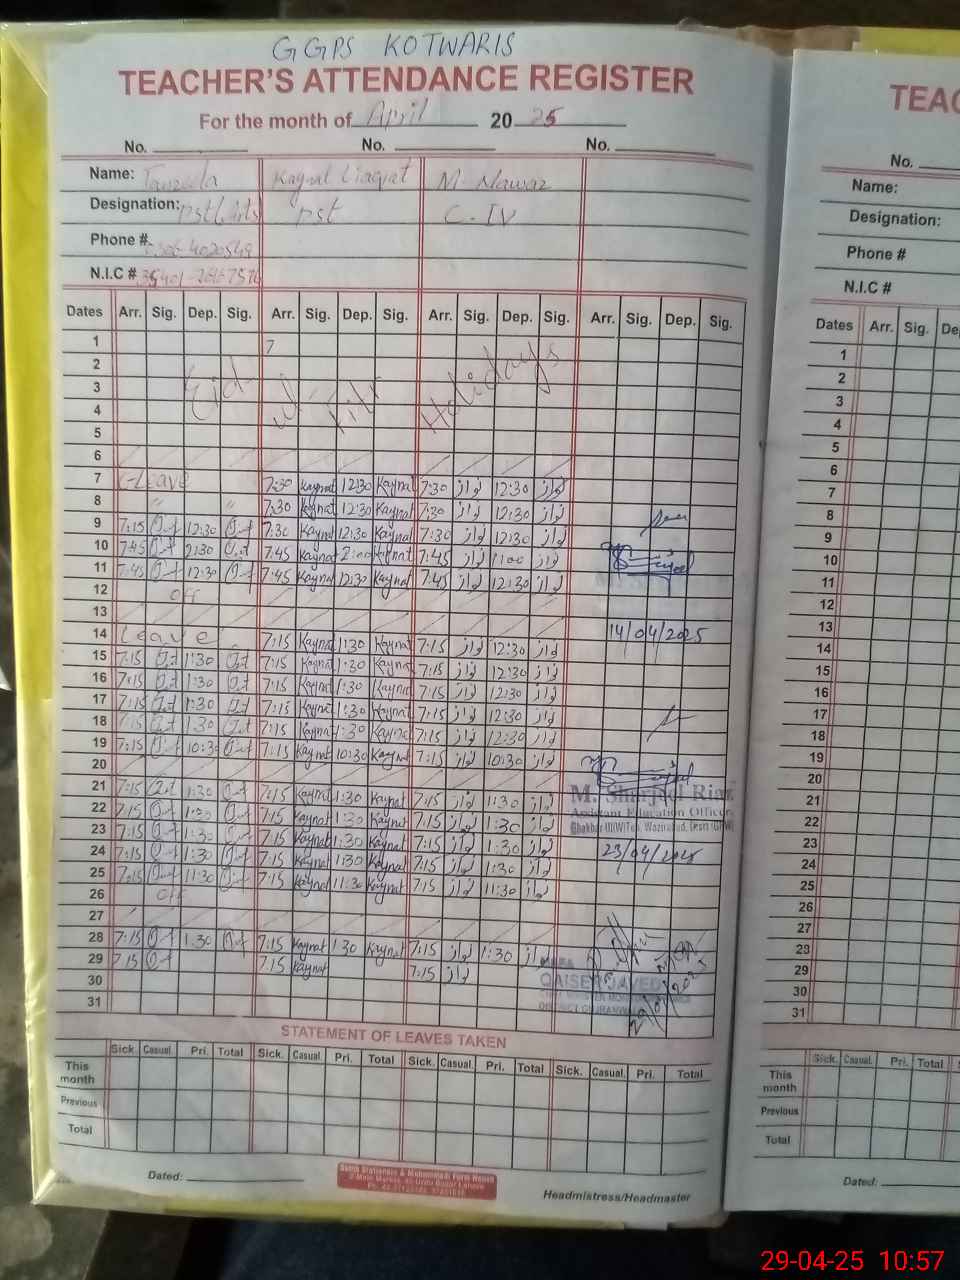 GGPS KOTWARIS
TEACHER'S ATTENDANCE REGISTER
For the month of April 2025
No. No. No.
Name: Tanzeela Kaynat Liaqat M. Nawaz
Designation: PST(Arts PST C-IV
Phone #
N.I.C #
Dates Arr. Sig. Dep. Sig. Arr. Sig. Dep. Sig. Arr. Sig. Dep. Sig. Arr. Sig. Dep. Sig.
1 7
2
3 Eid ul Fitr Holidays
4
5
6
7 C-Leave 7:30 Kaynat 12:30 Kaynat 7:30 نواز 12:30 نواز
8 " " 7:30 Kaynat 12:30 Kaynat 7:30 نواز 12:30 نواز
9 7:15 12:30 7:30 Kaynat 12:30 Kaynat 7:30 نواز 12:30 نواز
10 7:45 7:45 Kaynat Kaynat 7:45 نواز نواز
11 7:45 12:30 7:45 Kaynat 12:30 Kaynat 7:45 نواز 12:30 نواز
12 off
13 14/04/2025
14 Leave 7:15 Kaynat 1:30 Kaynat 7:15 نواز 12:30 نواز
15 7:15 1:30 7:15 Kaynat 1:30 Kaynat 7:15 نواز 12:30 نواز
16 7:15 1:30 7:15 Kaynat 1:30 Kaynat 7:15 نواز 12:30 نواز
17 7:15 1:30 7:15 Kaynat 1:30 Kaynat 7:15 نواز 12:30 نواز
18 7:15 1:30 7:15 Kaynat 1:30 Kaynat 7:15 نواز 12:30 نواز
19 7:15 10:30 7:15 Kaynat 10:30 Kaynat 7:15 نواز 10:30 نواز
20
21 7:15 1:30 7:15 Kaynat 1:30 Kaynat 7:15 نواز 1:30 نواز
M. Sharjeel Riaz
22 7:15 1:30 7:15 Kaynat 1:30 Kaynat 7:15 نواز 1:30 نواز
Assistant Education Officer
23 7:15 1:30 7:15 Kaynat 1:30 Kaynat 7:15 نواز 1:30 نواز
24 7:15 1:30 7:15 Kaynat 1:30 Kaynat 7:15 نواز 1:30 نواز
23/04/2025
25 7:15 11:30 7:15 Kaynat 11:30 Kaynat 7:15 نواز 11:30 نواز
26 off
27
28 7:15 1:30 7:15 Kaynat 1:30 Kaynat 7:15 نواز 1:30 نواز
29 7:15 7:15 Kaynat 7:15 نواز
QAISER JAVED
30
29/04/2025
31
STATEMENT OF LEAVES TAKEN
Sick. Casual. Pri. Total Sick. Casual. Pri. Total Sick. Casual. Pri. Total Sick. Casual. Pri. Total
This month
Previous
Total
Dated:
Headmistress/Headmaster
TEAC
No.
Name:
Designation:
Phone #
N.I.C #
Dates Arr. Sig. De
1
2
3
4
5
6
7
8
9
10
11
12
13
14
15
16
17
18
19
20
21
22
23
24
25
26
27
28
29
30
31
Sick. Casual. Pri. Total S
This month
Previous
Total
Dated:
29-04-25 10:57